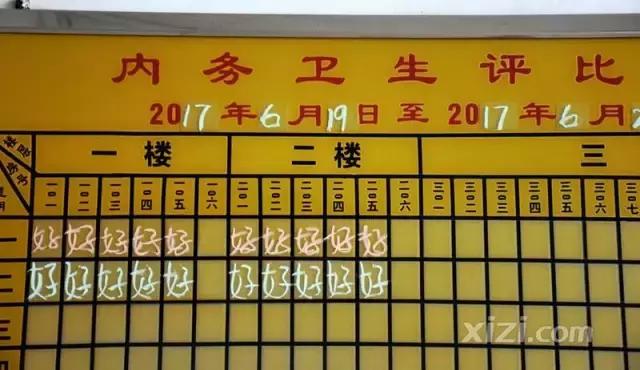 内务卫生评比
2017年6月19日至2017年6月2
一楼 二楼 三
一〇一 一〇二 一〇三 一〇四 一〇五 一〇六 二〇一 二〇二 二〇三 二〇四 二〇五 二〇六 三〇一 三〇二 三〇三 三〇四 三〇五 三〇六 三〇七
一 好 好 好 好 好 好 好 好 好 好
二 好 好 好 好 好 好 好 好 好 好
三
四
xizi.com